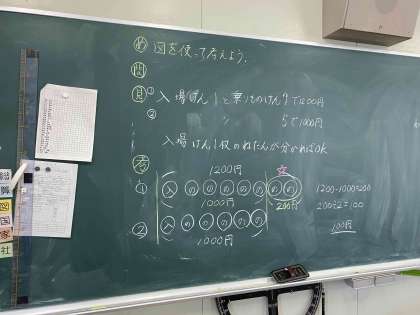 め 図を使って考えよう。
問
見 ① 入場けん1と乗りものけん7で1200円
② 〃 〃 5で1000円
入場けん1枚のねだんが分かればOK
考
1200円
① 入 の の の の の の の
1000円
200円
② 入 の の の の の
1000円
1200-1000=200
200÷2=100
100円
算
図
図
家
社